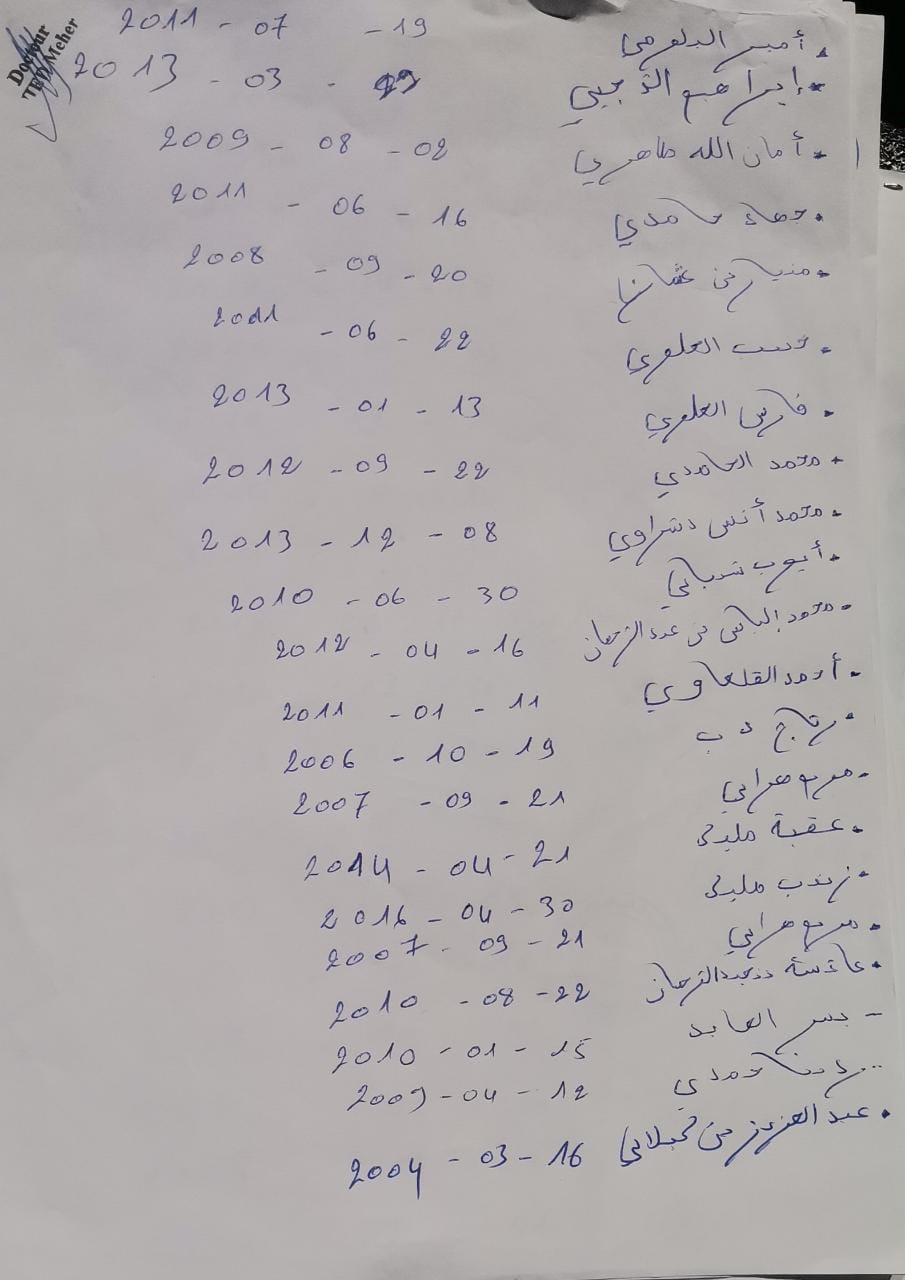 Docteur
TEJ Meher
. أمير البلومي 19 - 07 - 2011
إبراهيم الذهبي - 03 - 2013
. أمان الله طاهري 02 - 08 - 2009
. حامدي 16 - 06 - 2011
. بن عثمان 20 - 09 - 2008
. العلوي 22 - 06 - 2011
. فارس العلوي 13 - 01 - 2013
. محمد الحامدي 22 - 09 - 2012
. محمد أنس دشراوي 08 - 12 - 2013
. أيوب شيباني 30 - 06 - 2010
. محمد إلياس بن عبد الرحمان 16 - 04 - 2012
. أحمد القلعاوي 11 - 01 - 2011
. 19 - 10 - 2006
. مريم هرابي 21 - 09 - 2007
. عقبة مليكي 21 - 04 - 2014
. زينب مليكي 30 - 04 - 2016
. مريم هرابي 21 - 09 - 2007
. عائشة بن عبد الرحمان 22 - 08 - 2010
- العابد 15 - 01 - 2010
حمدي 12 - 04 - 2009
. عبد العزيز بن جيلاني 16 - 03 - 2004